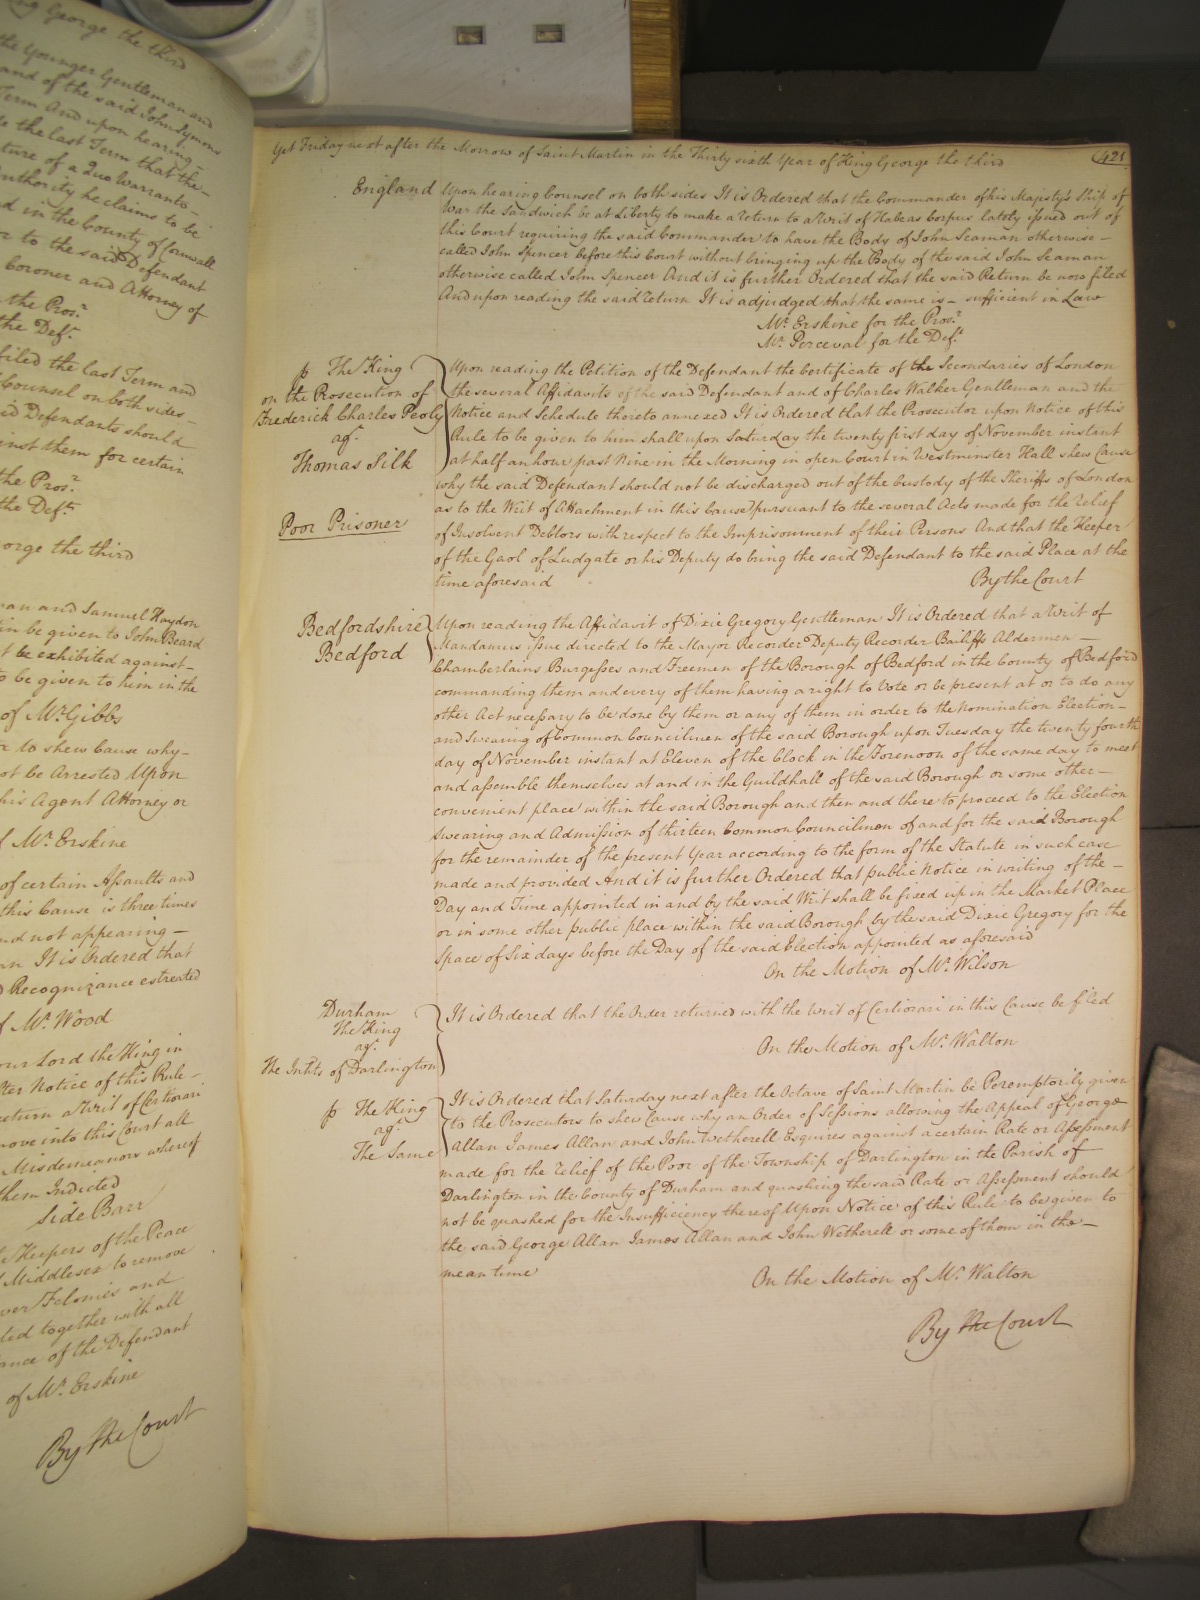 ng George the third
the Younger Gentleman and
and of the said John Symons
Term And upon hearing
e the last Term that the
ture of a Quo Warranto
uthority he claims to be
d in the County of Cornwall
or to the said Defendant
Coroner and Attorney of
the Pros.r
the Def.t
filed the last Term and
Counsel on both sides
id Defendants should
inst them for certain
the Pros.r
the Def.t
orge the third
man and Samuel Haydon
in be given to John Beard
t be exhibited against
o be given to him in the
of Mr. Gibbs
r to shew Cause why
ot be Arrested Upon
his Agent Attorney or
f Mr. Erskine
of certain Assaults and
this Cause is three times
nd not appearing
an It is Ordered that
Recognizance estreated
f Mr. Wood
our Lord the King in
fter Notice of this Rule
return a Writ of Certiorari
move into this Court all
Misdemeanors whereof
them Indicted
Side Barr
e Keepers of the Peace
Middlesex to remove
ver Felonies and
ted together with all
ance of the Defendant
of Mr. Erskine
By the Court
Yet Friday next after the Morrow of Saint Martin in the Thirty sixth Year of King George the third
421
England Upon hearing Counsel on both sides It is Ordered that the Commander of his Majesty's Ship of
War the Sandwich be at Liberty to make a Return to a Writ of Habeas Corpus lately issued out of
this Court requiring the said Commander to have the Body of John Seaman otherwise
called John Spencer before this Court without bringing up the Body of the said John Seaman
otherwise called John Spencer And it is further Ordered that the said Return be now filed
And upon reading the said Return It is adjudged that the same is sufficient in Law
Mr. Erskine for the Pros.r
Mr. Perceval for the Def.t
p The King
on the Prosecution of
Frederick Charles
ag.t
Thomas Silk
Poor Prisoner
Upon reading the Petition of the Defendant the Certificate of the Secondaries of London
the several Affidavits of the said Defendant and of Charles Walker Gentleman and the
Notice and Schedule thereto annexed It is Ordered that the Prosecutor upon Notice of this
Rule to be given to him shall upon Saturday the twenty first day of November instant
at half an hour past Nine in the Morning in open Court in Westminster Hall shew Cause
why the said Defendant should not be discharged out of the Custody of the Sheriffs of London
as to the Writ of Attachment in this Cause pursuant to the several Acts made for the Relief
of Insolvent Debtors with respect to the Imprisonment of their Persons And that the Keeper
of the Gaol of Ludgate or his Deputy do bring the said Defendant to the said Place at the
time aforesaid By the Court
Bedfordshire
Bedford
Upon reading the Affidavit of Dixie Gregory Gentleman It is Ordered that a Writ of
Mandamus issue directed to the Mayor Recorder Deputy Recorder Bailiffs Aldermen
Chamberlains Burgesses and Freemen of the Borough of Bedford in the County of Bedford
commanding them and every of them having a right to Vote or be present at or to do any
other Act necessary to be done by them or any of them in order to the Nomination Election
and Swearing of Common Councilmen of the said Borough upon Tuesday the twenty fourth
day of November instant at Eleven of the Clock in the Forenoon of the same day to meet
and assemble themselves at and in the Guildhall of the said Borough or some other
convenient place within the said Borough and then and there to proceed to the Election
Swearing and Admission of thirteen Common Councilmen of and for the said Borough
for the remainder of the present Year according to the form of the Statute in such case
made and provided And it is further Ordered that public Notice in writing of the
Day and Time appointed in and by the said Writ shall be fixed up in the Market Place
or in some other public place within the said Borough by the said Dixie Gregory for the
Space of Six days before the Day of the said Election appointed as aforesaid
On the Motion of Mr. Wilson
Durham
The King
ag.t
The Inh'ts of Darlington
It is Ordered that the Order returned with the Writ of Certiorari in this Cause be filed
On the Motion of Mr. Walton
p The King
ag.t
The Same
It is Ordered that Saturday next after the Octave of Saint Martin be Peremptorily given
to the Prosecutors to shew Cause why an Order of Sessions allowing the Appeal of George
Allan James Allan and John Wetherell Esquires against a certain Rate or Assessment
made for the Relief of the Poor of the Township of Darlington in the Parish of
Darlington in the County of Durham and quashing the said Rate or Assessment should
not be quashed for the Insufficiency thereof Upon Notice of this Rule to be given to
the said George Allan James Allan and John Wetherell or some of them in the
mean time
On the Motion of Mr. Walton
By the Court